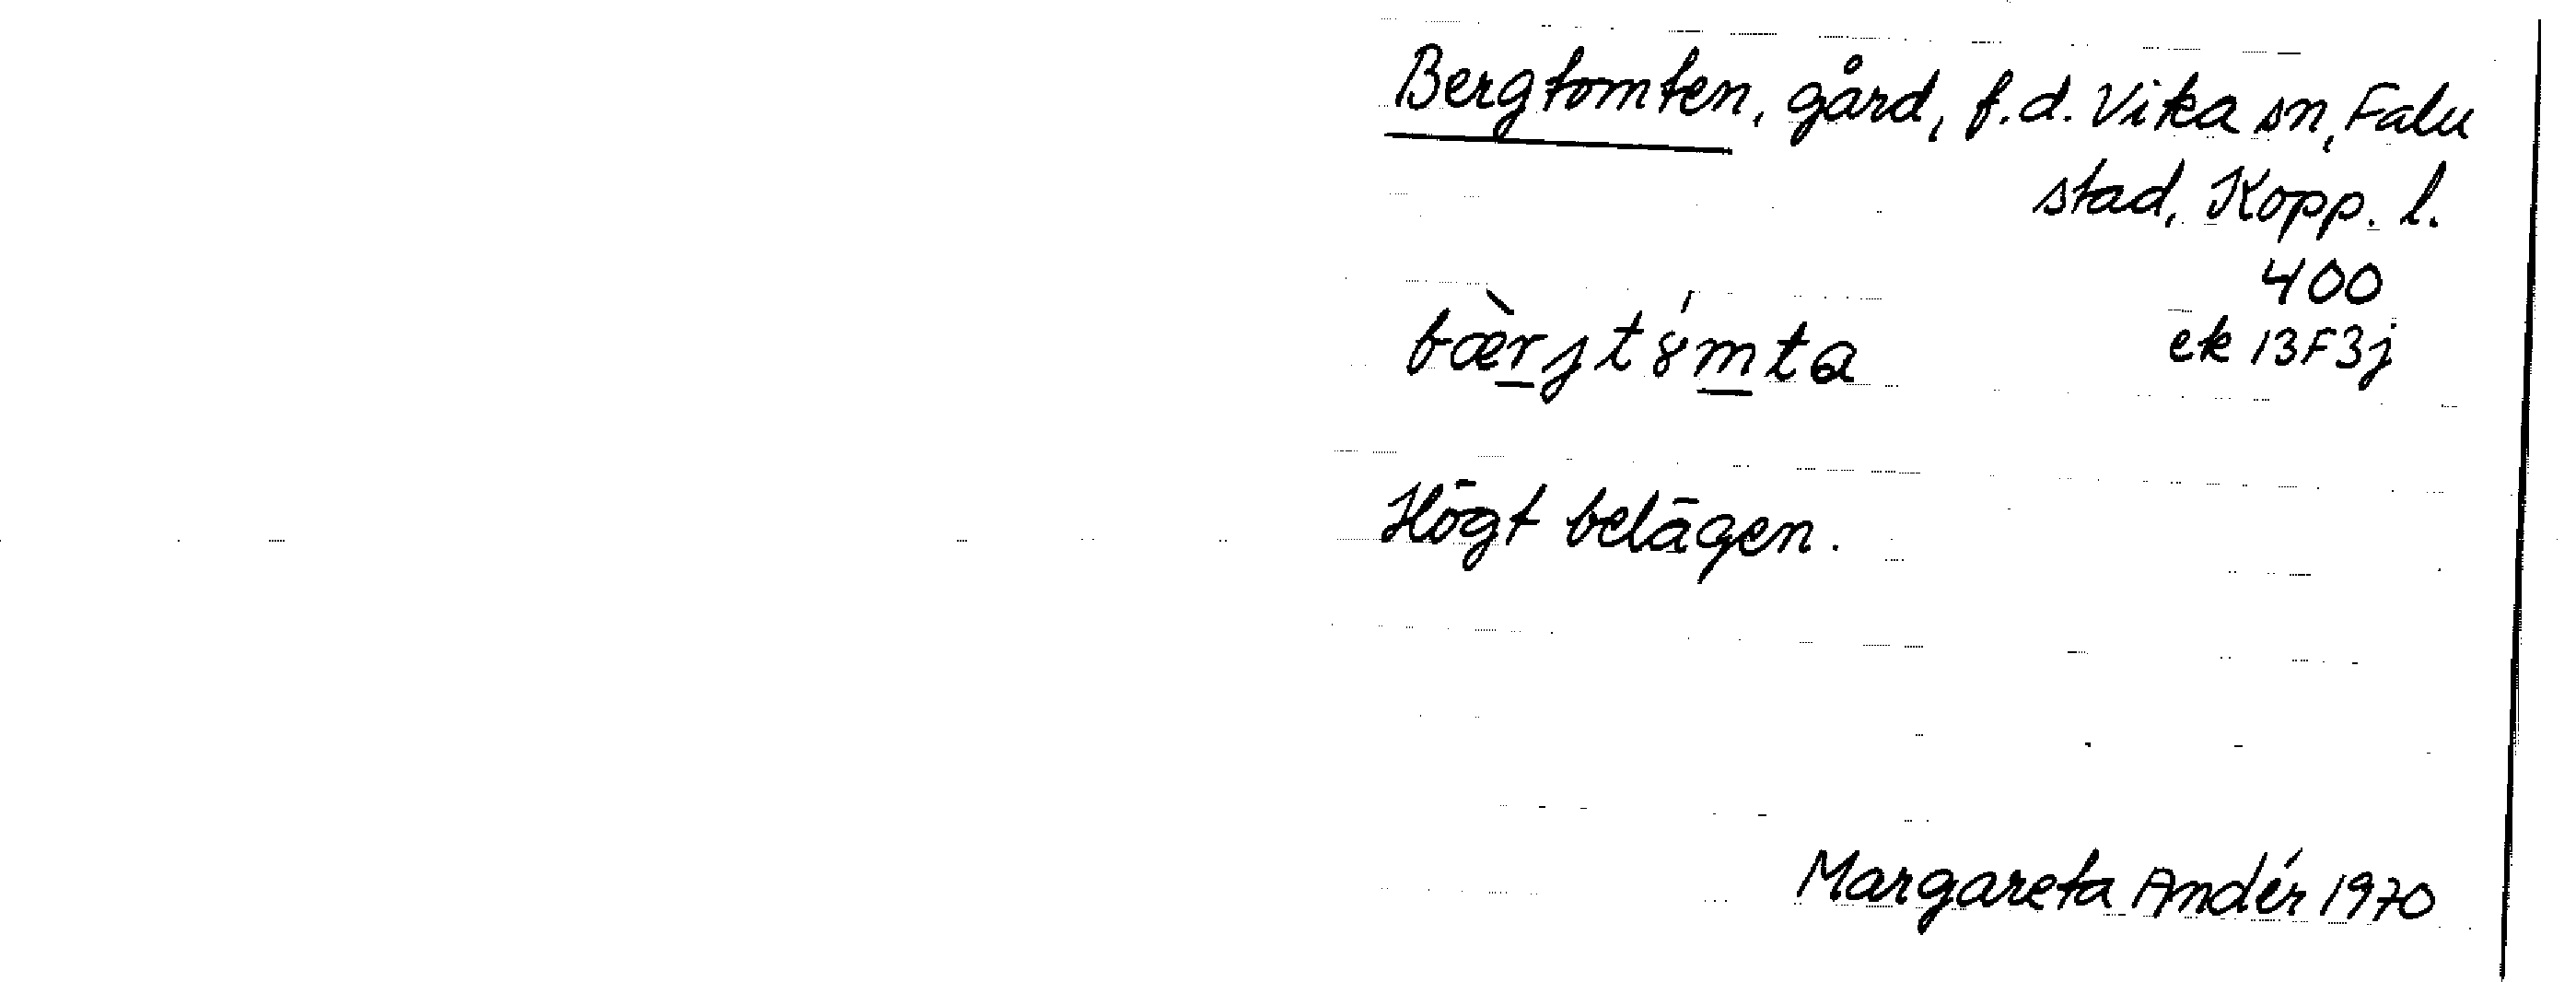 Bergtomten, gård, f.d. Vika sn, Falu
stad, Kopp. l.
400
bæ̀r̲jt8́m̲ta
ek 13F3j
Högt belägen.
Margareta Andér 1970